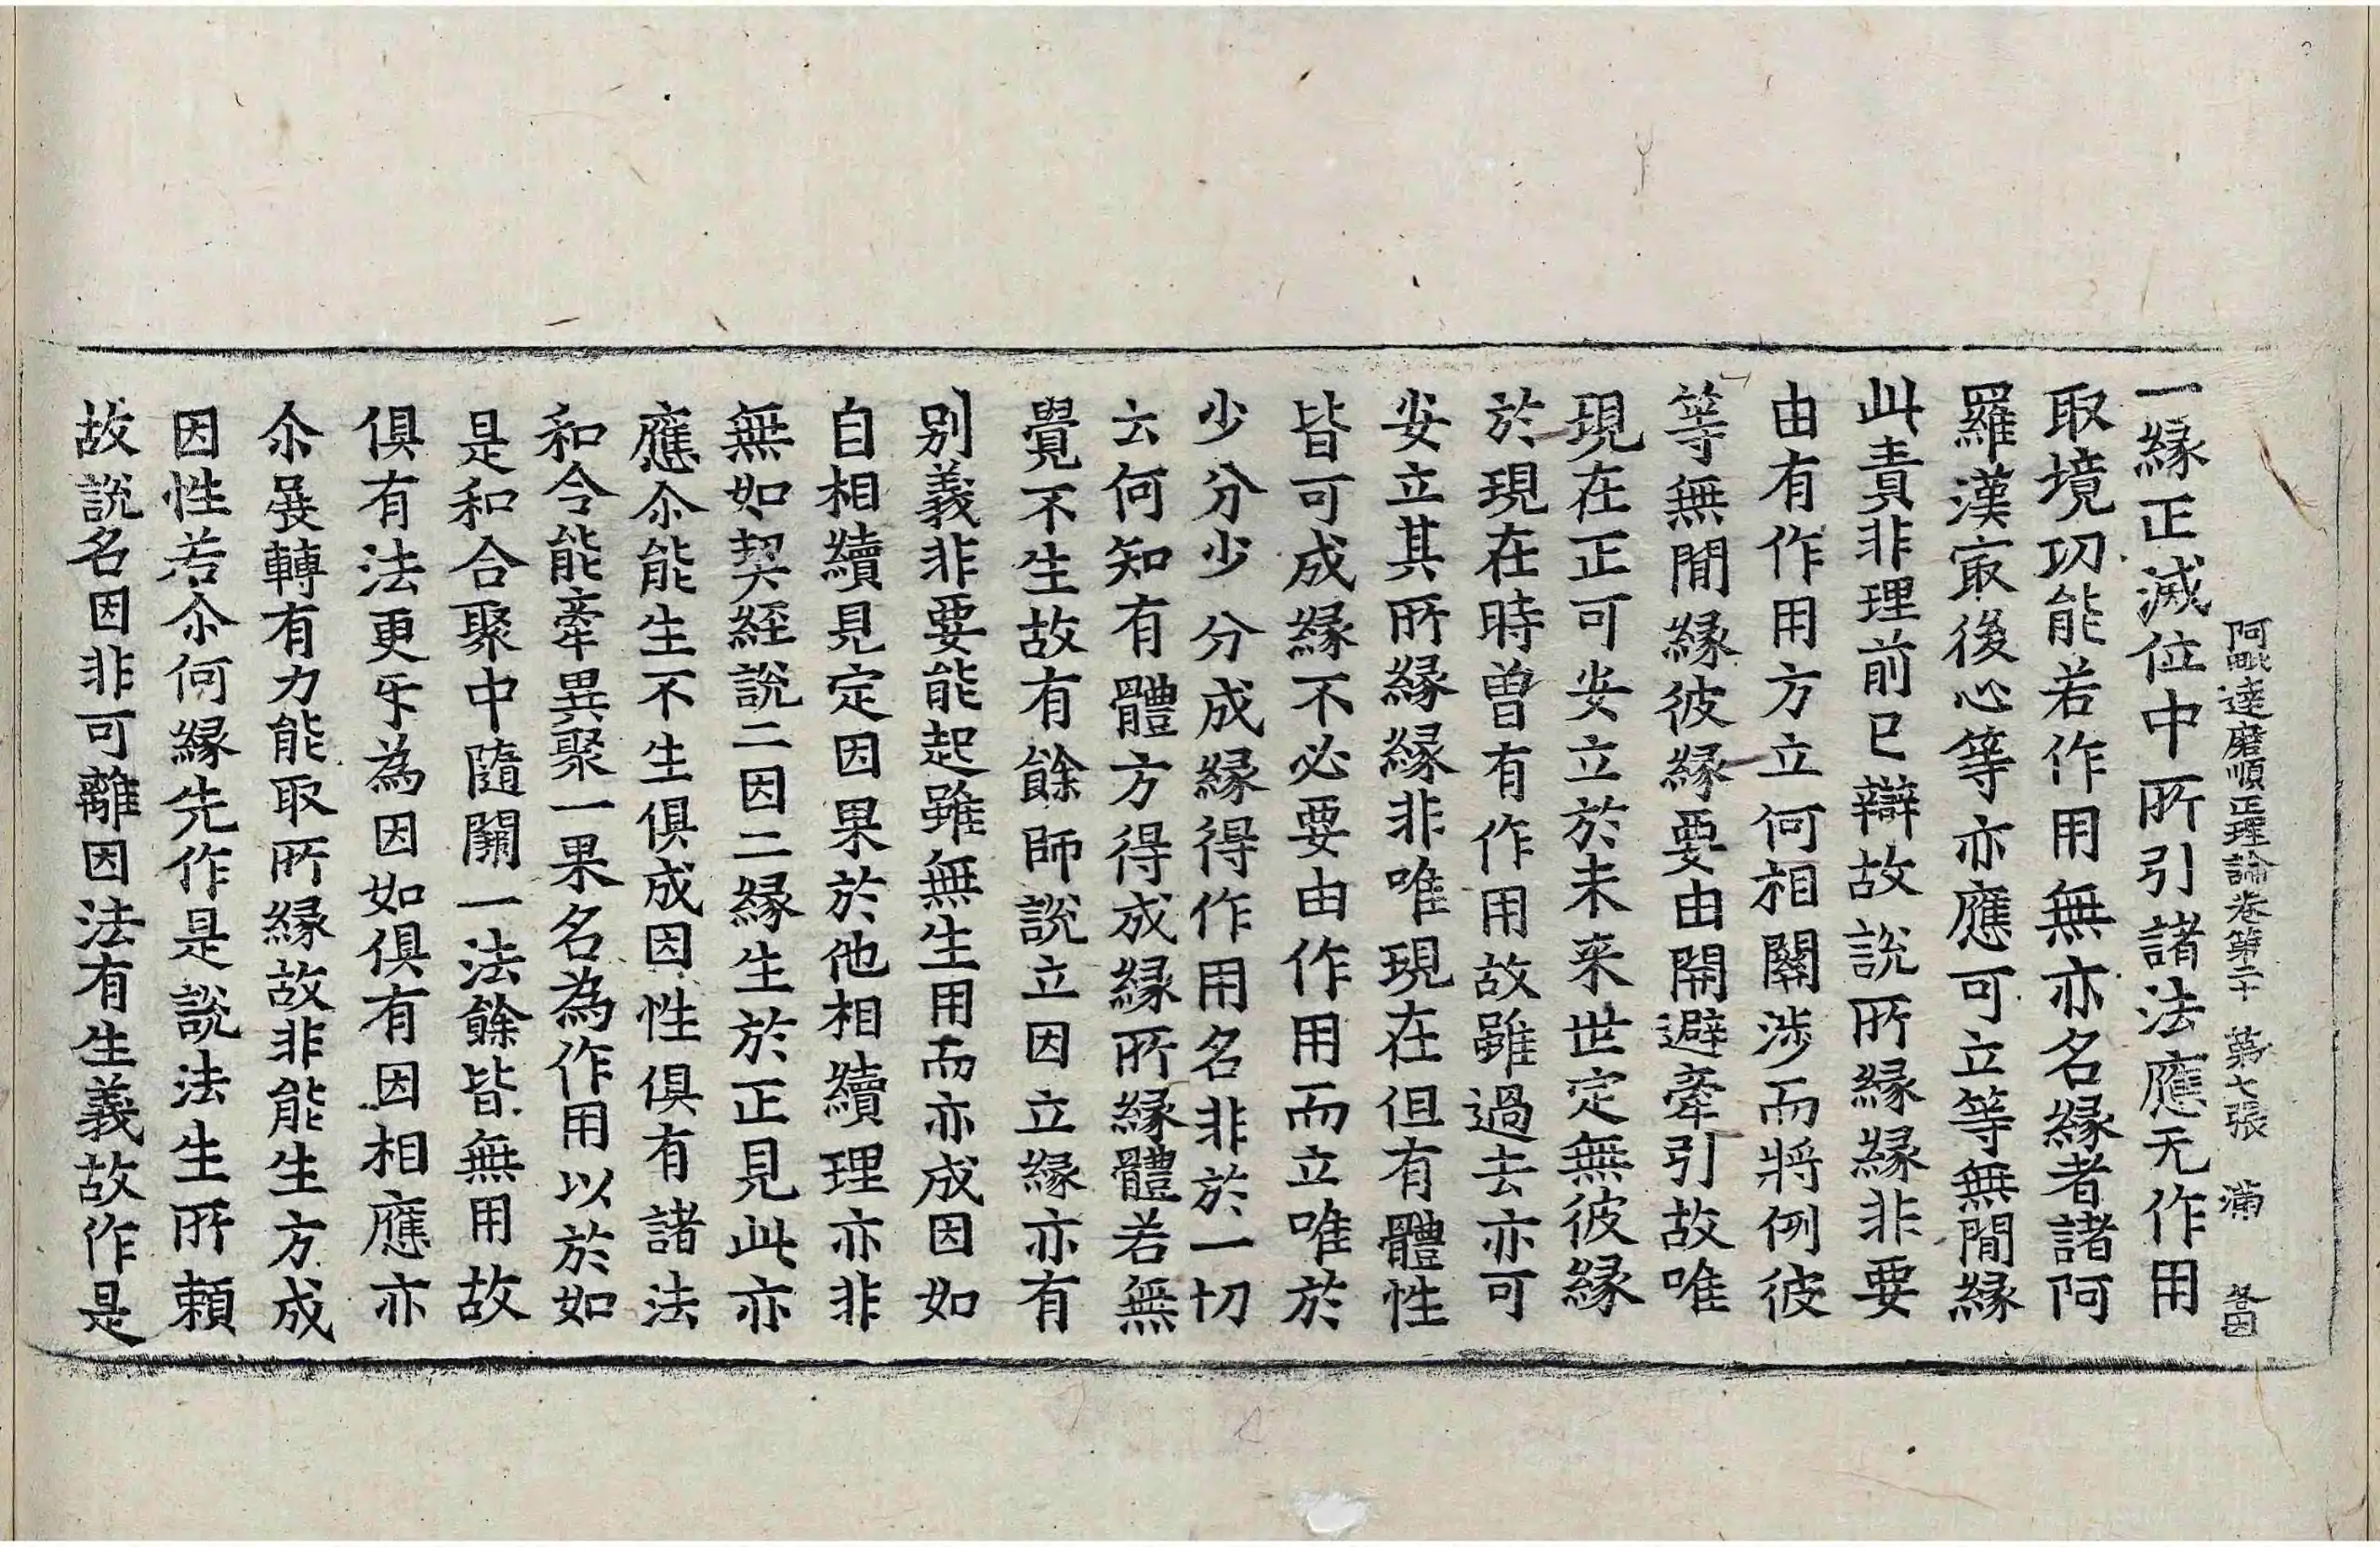 阿毗達磨順正理論卷第二十 第七張 滿
一緣正滅位中所引諸法應无作用
取境功能若作用無亦名緣者諸阿
羅漢㝡後心等亦應可立等無間緣
此責非理前已辯故說所緣緣非要
由有作用方立何相關涉而將例彼
等無間緣彼緣要由開避牽引故唯
現在正可安立於未來世定無彼緣
於現在時曾有作用故雖過去亦可
安立其所緣緣非唯現在但有體性
皆可成緣不必要由作用而立唯於
少分少分成緣得作用名非於一切
云何知有體方得成緣所緣體若無
覺不生故有餘師說立因立緣亦有
別義非要能起雖無生用而亦成因如
自相續見定因果於他相續理亦非
無如契經說二因二緣生於正見此亦
應尒能生不生俱成因性俱有諸法
和合能牽異聚一果名為作用以於如
是和合聚中隨闕一法餘皆無用故
俱有法更㸦為因如俱有因相應亦
尒展轉有力能取所緣故非能生方成
因性若尒何緣先作是說法生所賴
故說名因非可離因法有生義故作是